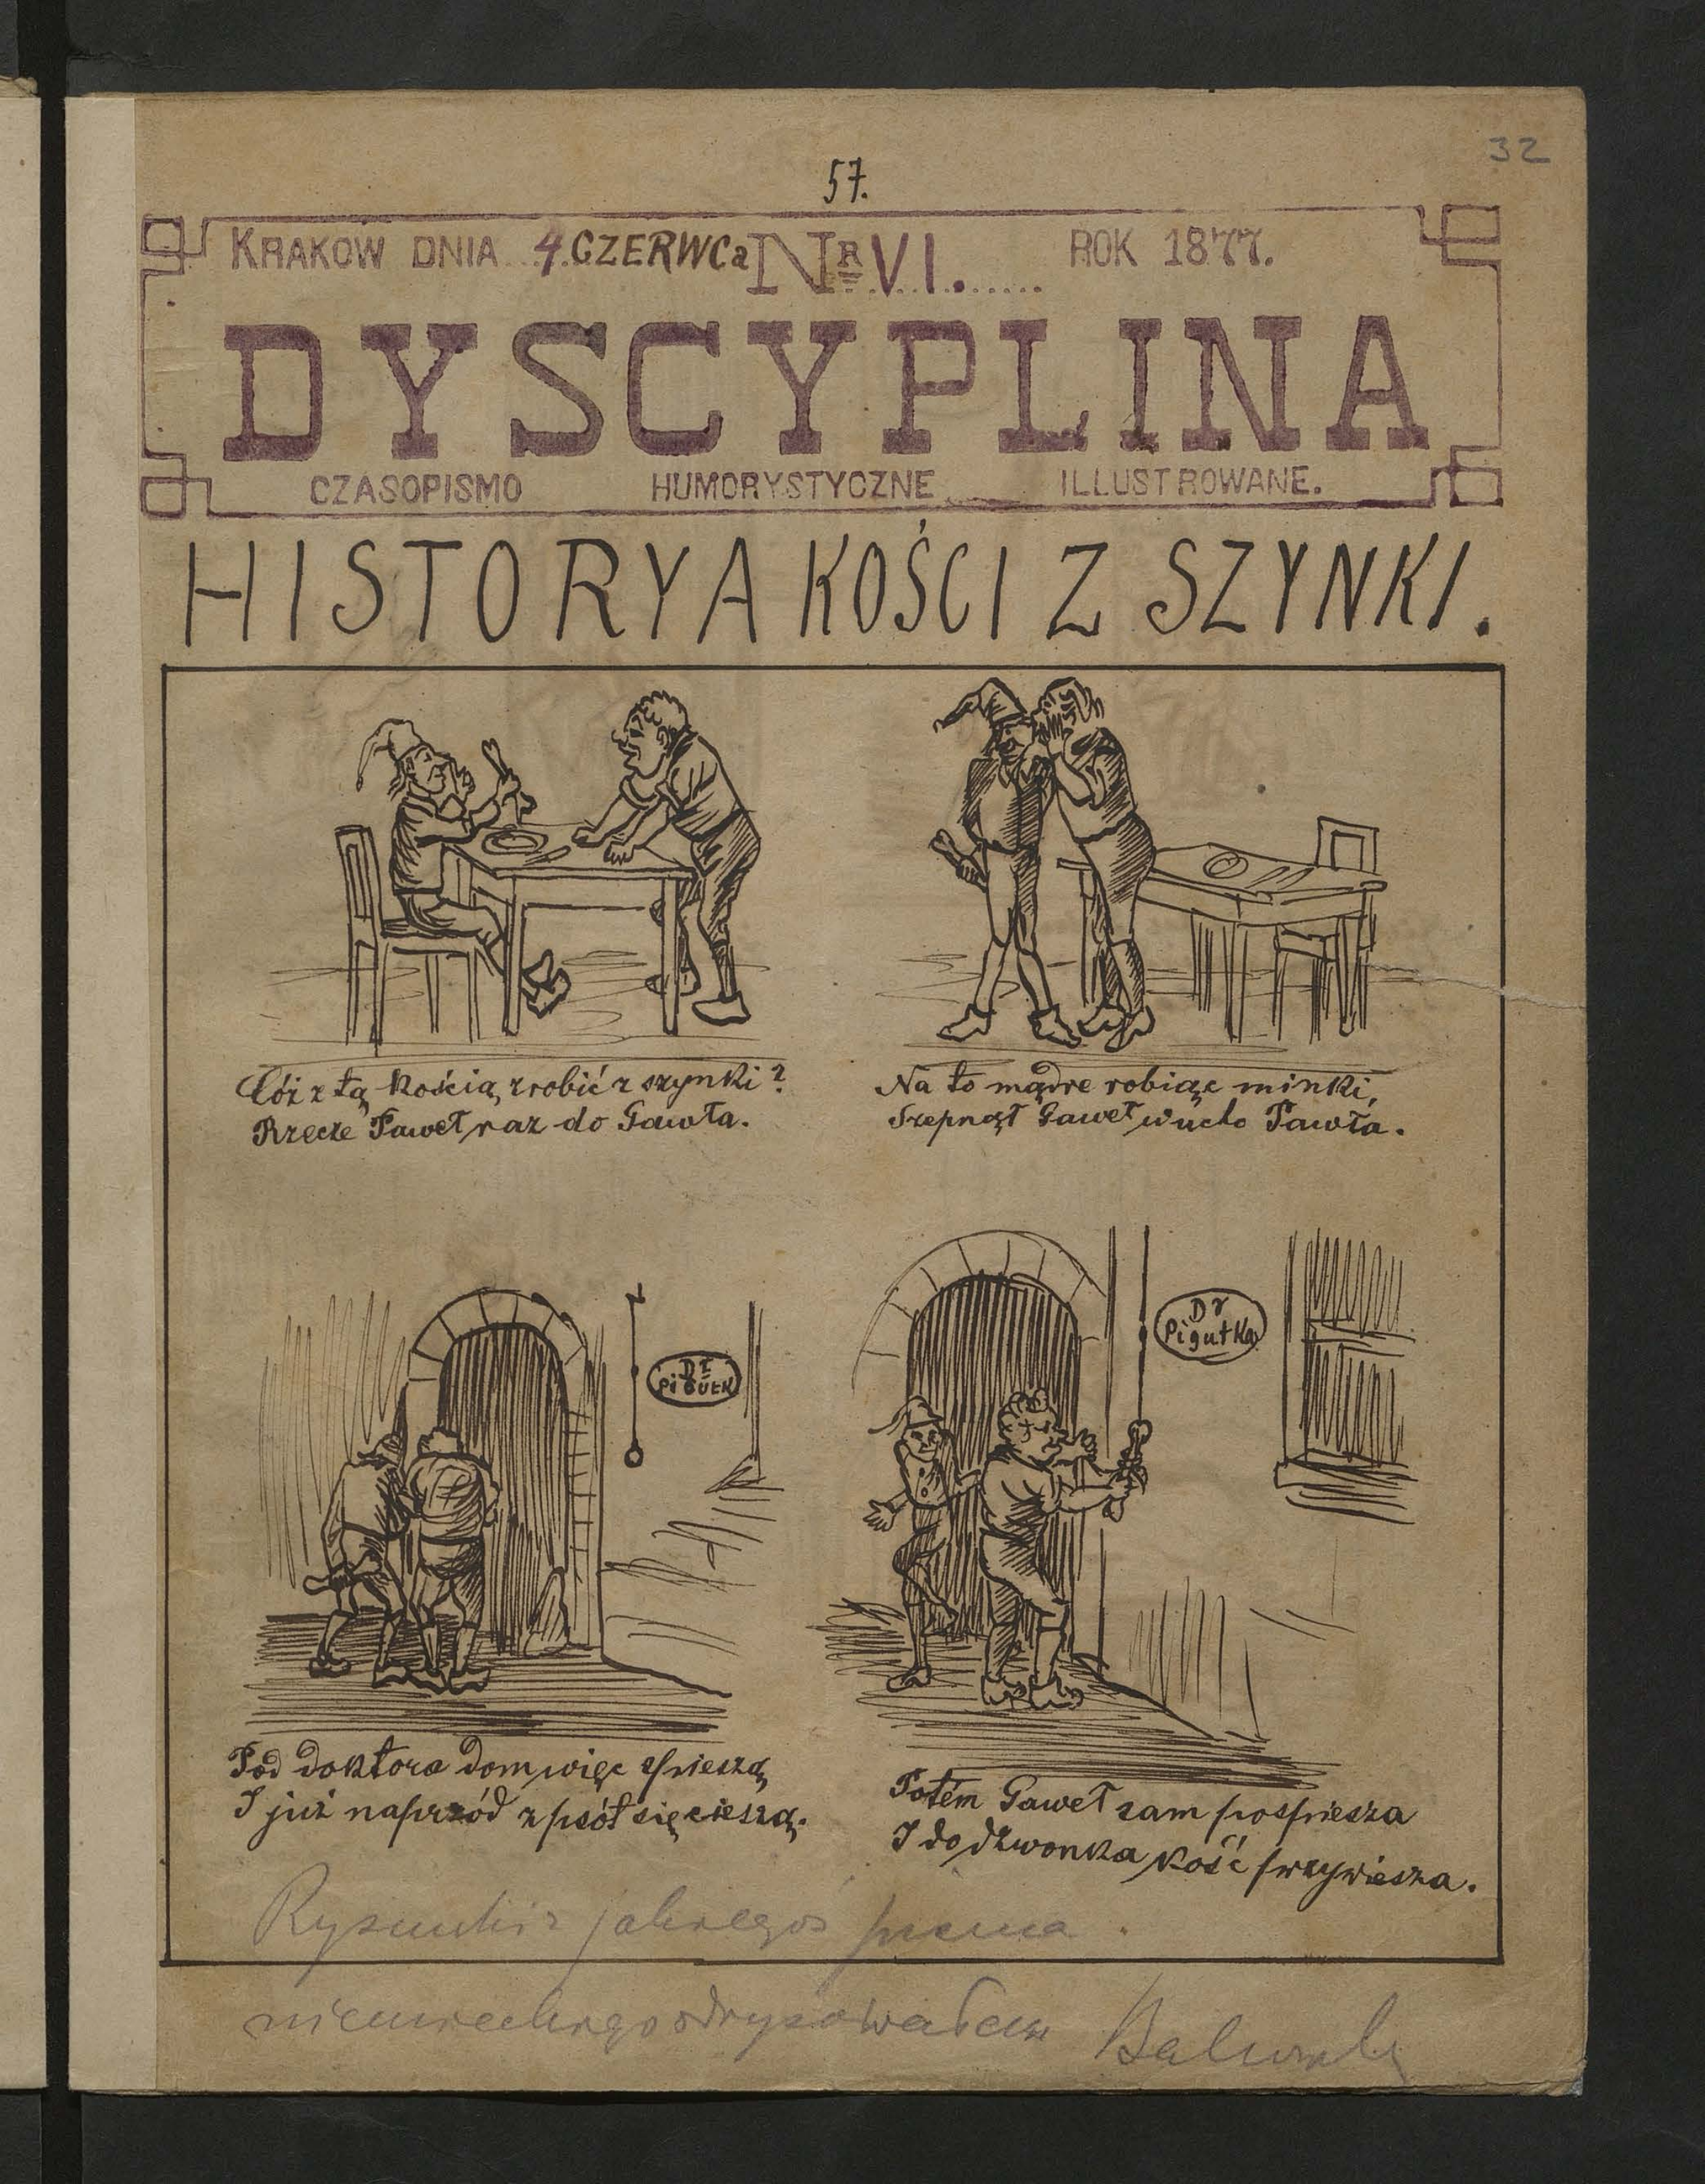 32
57.
KRAKOW DNIA 4. CZERWCa NR VI. ROK 1877.
DYSCYPLINA
CZASOPISMO HUMORYSTYCZNE ILLUSTROWANE.
HISTORYA KOŚCI Z SZYNKI.
Cóż z tą kością zrobić z szynki?
Rzecze Paweł raz do Gawła.
Na to mądre robiąc minki,
Szepnął Gaweł w ucho Pawła.
Dr
Pigułk
Dr
Pigułka
Pod doktora dom więc spieszą
I już naprzód z psót się cieszą.
Potém Gaweł sam pospiesza
I do dzwonka kość przywiesza.
Rysunki z jakiegoś pisma
niemieckiego odrysowałem